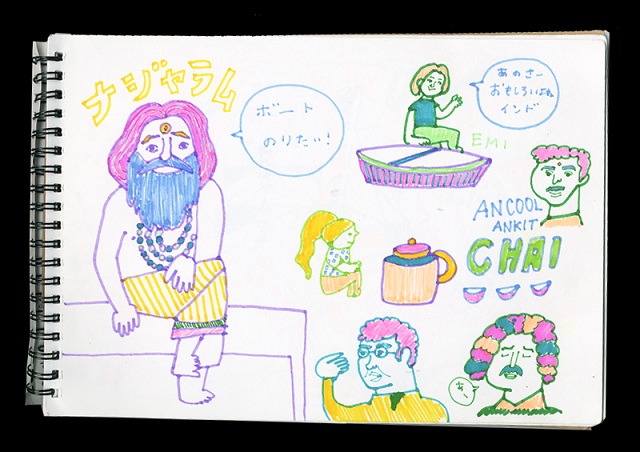 ナジャラム
ボート
のりたい!
あのさー
おもしろいよね
インド
EMI
ANCOOL
ANKIT
CHAI
あ〜